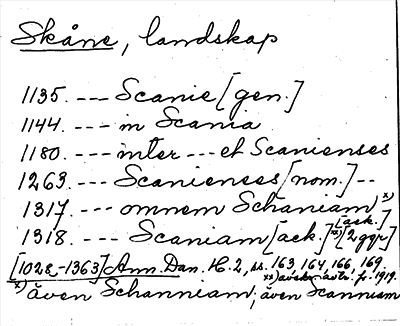 Skåne, landskap
1135. --- Scanie [gen.]
1144. --- in Scania
1180. --- inter --- et Scanienses
1263. --- Scanienses [nom.] --
1317. --- omnem Schaniam x) [ack.]
1318. --- Scaniam [ack.] xx) [2 ggr]
[1028-1363] Ann. Dan. H. 2, ss. 163, 164, 166, 169.
xx) avskr. fr. 1919.
x) även Schanniam; även Scanniam